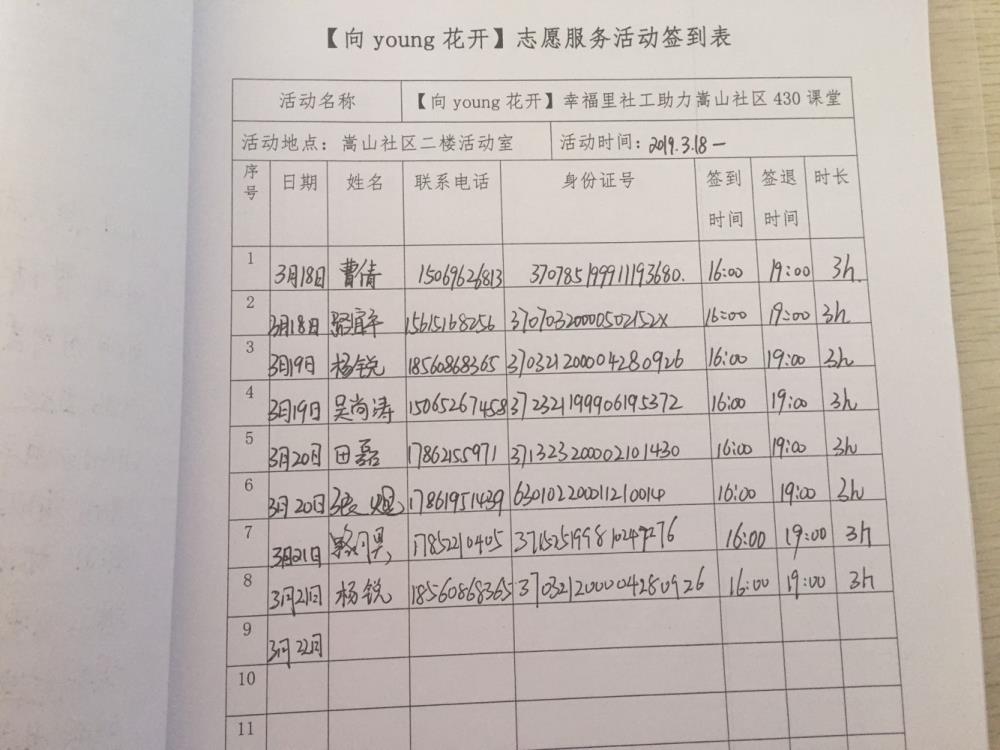 【向 young 花开】志愿服务活动签到表
活动名称 【向 young 花开】幸福里社工助力嵩山社区 430 课堂
活动地点：嵩山社区二楼活动室 活动时间：2019.3.18—
序号 日期 姓名 联系电话 身份证号 签到时间 签退时间 时长
1 3月18日 曹倩 15069626813 370785199911193680. 16:00 19:00 3h.
2 3月18日 15615168256 37070320000502152X 16:00 19:00 3h
3 3月19日 杨锐 18560868365 370321200004280926 16:00 19:00 3h
4 3月19日 吴尚涛 15065267458 372321199906195372 16:00 19:00 3h
5 3月20日 田磊 17862155971 371323200002101430 16:00 19:00 3h
6 3月20日 张 17861951439 630102200011210014 16:00 19:00 3h
7 3月21日 17852210405 16:00 19:00 3h
8 3月21日 杨锐 18560868365 370321200004280926 16:00 19:00 3h
9 3月22日
10
11